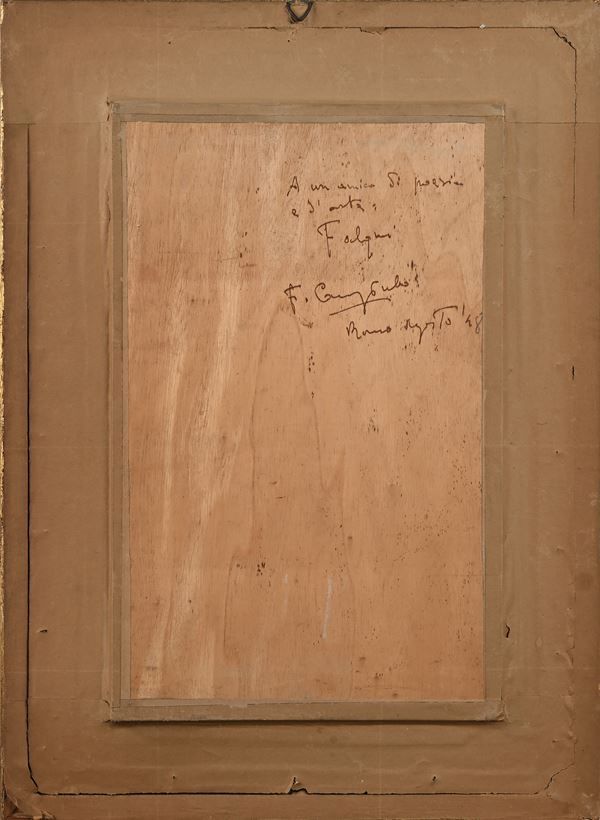 A un amico di poesia
e d'arte,
Falqui
F.
Roma Agosto '48